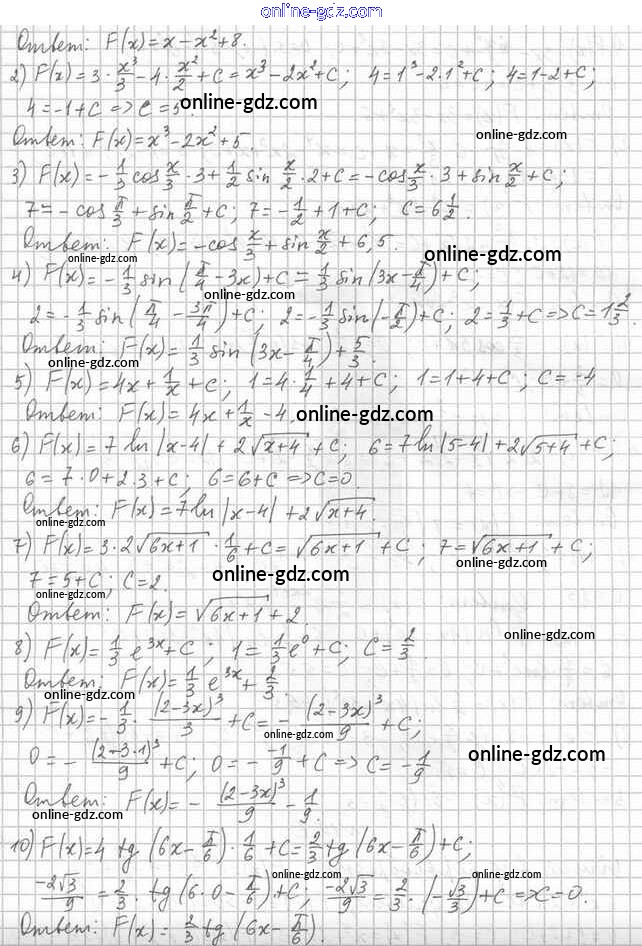 online-gdz.com
Ответ: F(x)=x-x²+8.
2) F(x)=3·x³/3-4·x²/2+C=x³-2x²+C; 4=1³-2·1²+C; 4=1-2+C;
4=-1+C=>C=5
online-gdz.com
Ответ: F(x)=x³-2x²+5.
online-gdz.com
3) F(x)=-1/3 cos x/3·3+1/2 sin x/2·2+C=-cos x/3·3+sin x/2+C;
online-gdz.com
7=-cos π/3+sin π/2+C; 7=-1/2+1+C; C=6 1/2.
Ответ: F(x)=-cos x/3+sin x/2+6,5.
online-gdz.com
online-gdz.com
4) F(x)=-1/3 sin(π/4-3x)+C=1/3 sin(3x-π/4)+C;
online-gdz.com
2=-1/3 sin(π/4-3π/4)+C; 2=-1/3 sin(-π/2)+C; 2=1/3+C=>C=1 2/3.
Ответ: F(x)=1/3 sin(3x-π/4)+5/3.
online-gdz.com
5) F(x)=4x+1/x+C; 1=4·1/4+4+C; 1=1+4+C; C=-4
Ответ: F(x)=4x+1/x-4.
online-gdz.com
6) F(x)=7 ln|x-4|+2√(x+4)+C; 6=7 ln|5-4|+2√(5+4)+C;
6=7·0+2·3+C; 6=6+C=>C=0.
Ответ: F(x)=7 ln|x-4|+2√(x+4).
online-gdz.com
online-gdz.com
7) F(x)=3·2√(6x+1)·1/6+C=√(6x+1)+C; 7=√(6x+1)+C;
online-gdz.com
online-gdz.com
7=5+C; C=2.
online-gdz.com
Ответ: F(x)=√(6x+1)+2.
online-gdz.com
8) F(x)=1/3 e³ˣ+C; 1=1/3 e⁰+C; C=2/3.
Ответ: F(x)=1/3 e³ˣ+2/3.
online-gdz.com
9) F(x)=-1/3·(2-3x)³/3+C=-(2-3x)³/9+C;
online-gdz.com
0=-(2-3·1)³/9+C; 0=-(-1)/9+C=>C=-1/9
online-gdz.com
Ответ: F(x)=-(2-3x)³/9-1/9.
10) F(x)=4 tg(6x-π/6)·1/6+C=2/3 tg(6x-π/6)+C;
online-gdz.com
online-gdz.com
-2√3/9=2/3·tg(6·0-π/6)+C; -2√3/9=2/3·(-√3/3)+C=>C=0.
Ответ: F(x)=2/3 tg(6x-π/6).
online-gdz.com